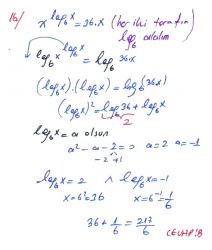 16/ x^{log_6 x} = 36.x (her iki tarafın log_6 alalım)
log_6 x^{log_6 x} = log_6 36x
(log_6 x).(log_6 x) = log_6 (36x)
(log_6 x)² = log_6 36 + log_6 x
2
log_6 x = a olsun
a² - a - 2 = 0 ⇒ a=2 a=-1
-2 +1
log_6 x = 2 ∧ log_6 x = -1
x = 6² = 36 x = 6^{-1} = 1/6
36 + 1/6 = 217/6
CEVAP: B